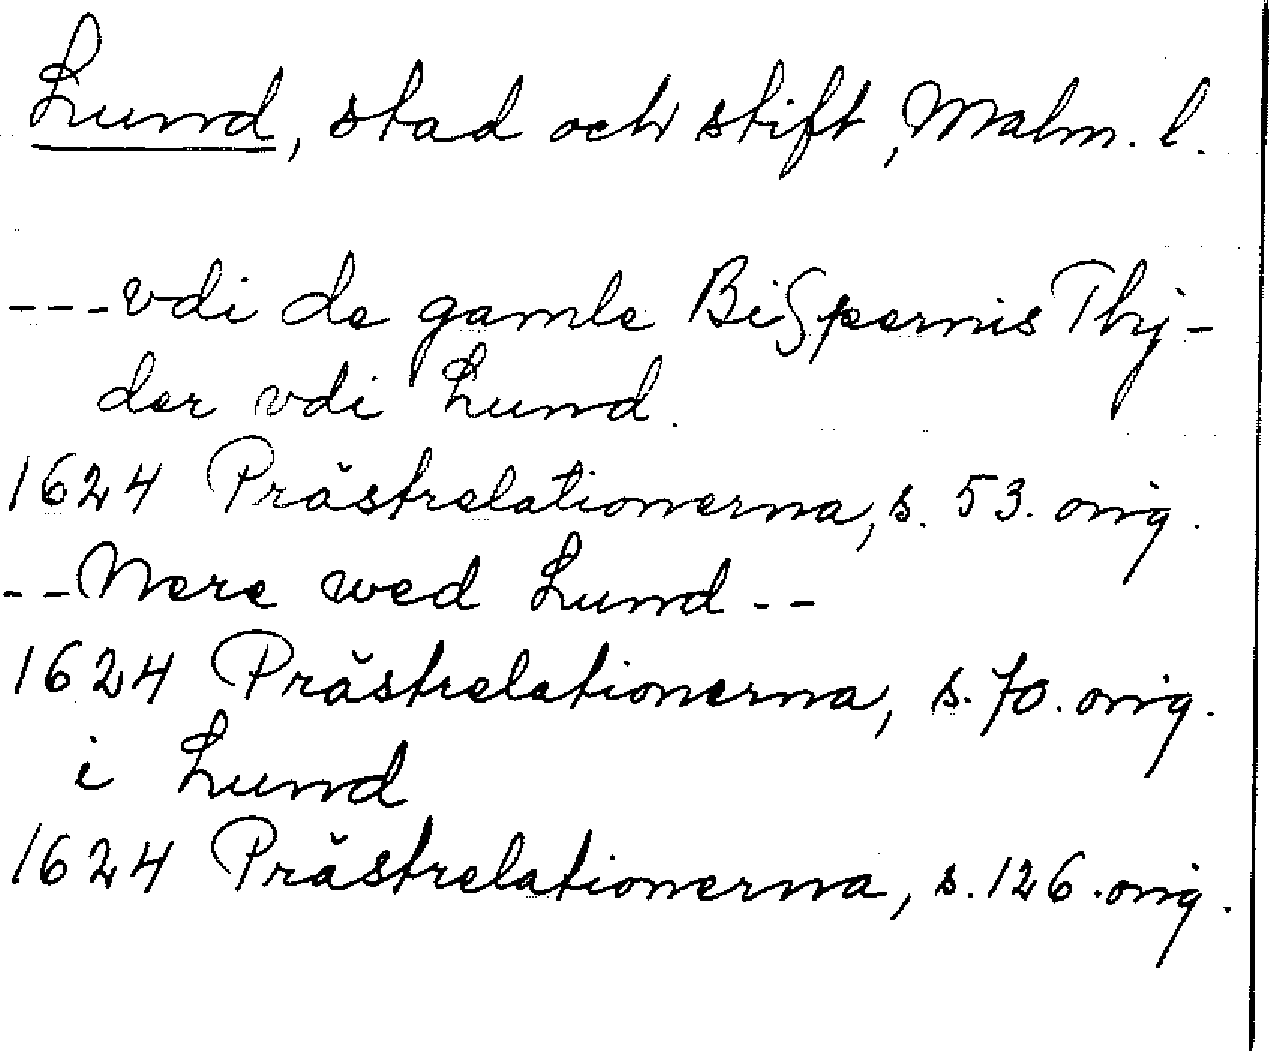 Lund, stad och stift, Malm. l.
---vdi de gamle Biſpernis Thij-
der vdi Lund.
1624 Prästrelationerna, s. 53. orig.
--Nere wed Lund--
1624 Prästrelationerna, s. 70. orig.
i Lund
1624 Prästrelationerna, s. 126. orig.